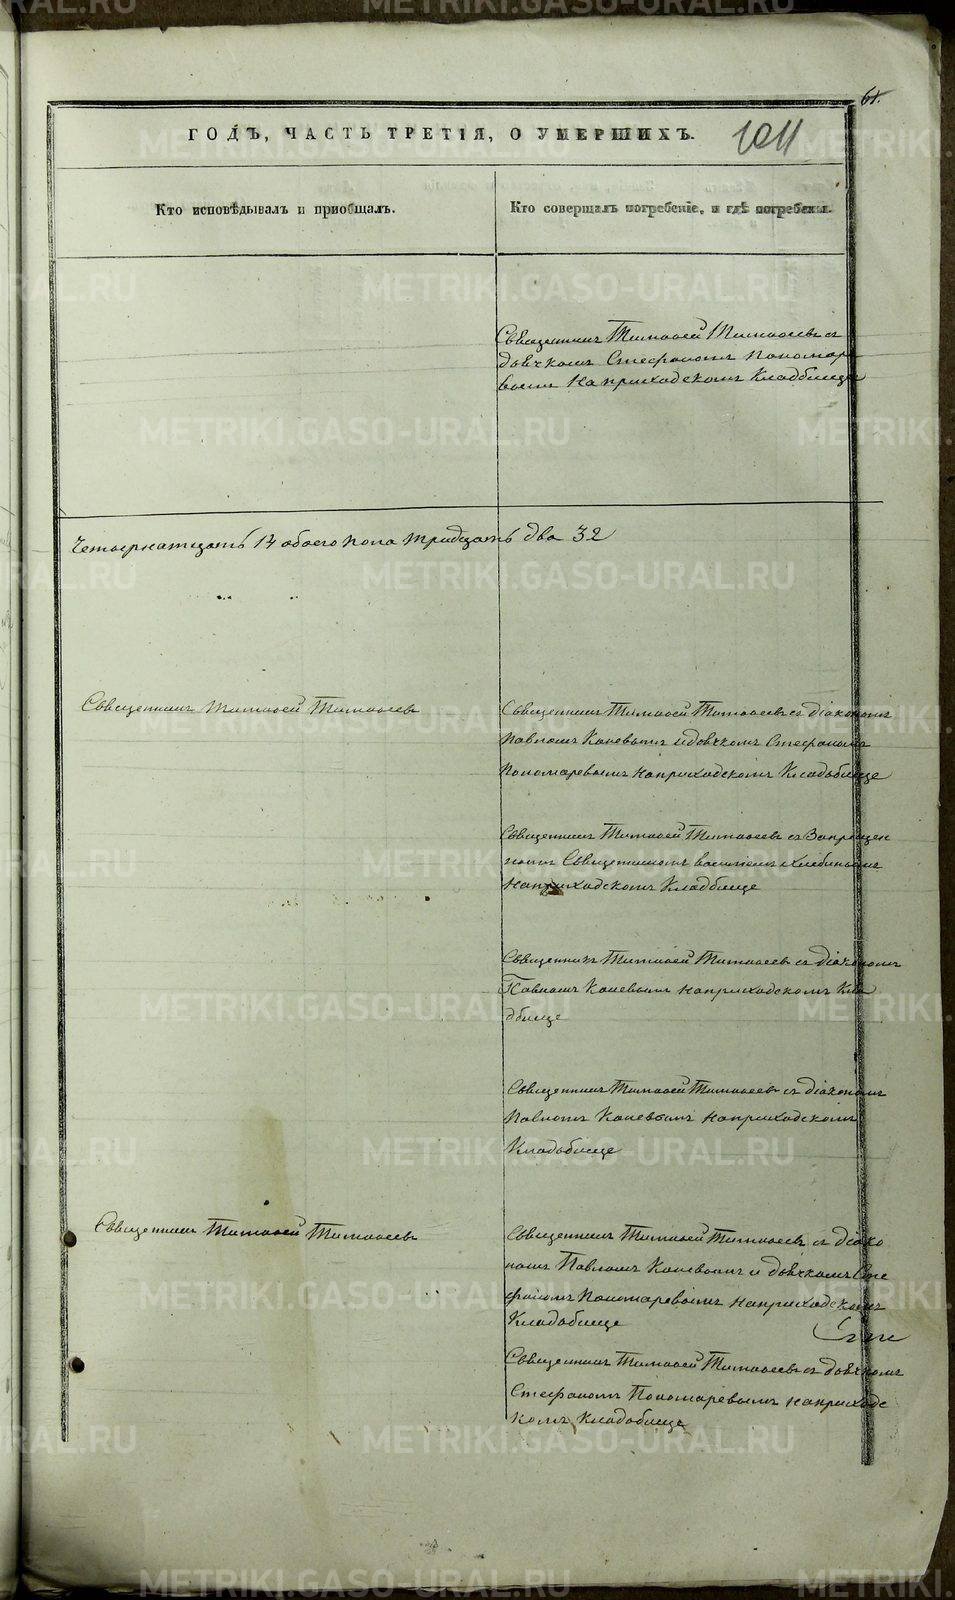 61.
ГОДЪ, ЧАСТЬ ТРЕТІЯ, О УМЕРШИХЪ.
1011
Кто исповѣдывалъ и пріобщалъ.
Кто совершалъ погребеніе, и гдѣ погребены.
Священникъ Тимоѳей Тимоѳеевъ съ
дьячкомъ Стефаномъ Пономаре
вымъ на приходскомъ Кладбище
Четырнатцать 14 обоего пола тридцать два 32
Священникъ Тимоѳей Тимоѳеевъ
Священникъ Тимоѳей Тимоѳеевъ съ діакономъ
Павломъ Каневымъ и дьячкомъ Стефаномъ
Пономаревымъ на приходскомъ Кладбище
Священникъ Тимоѳей Тимоѳеевъ съ Запрещен
нымъ Священникомъ
на приходскомъ Кладбище
Священникъ Тимоѳей Тимоѳеевъ съ діакономъ
Павломъ Каневымъ на приходскомъ Кла
дбище
Священникъ Тимоѳей Тимоѳеевъ съ діакономъ
Павломъ Каневымъ на приходскомъ
Кладбище
Священникъ Тимоѳей Тимоѳеевъ
Священникъ Тимоѳей Тимоѳеевъ съ діако
номъ Павломъ Каневымъ и дьячкомъ Сте
фаномъ Пономаревымъ на приходскомъ
Кладбище
Священникъ Тимоѳей Тимоѳеевъ съ дьячкомъ
Стефаномъ Пономаревымъ на приходс
комъ Кладбище
METRIKI.GASO-URAL.RU